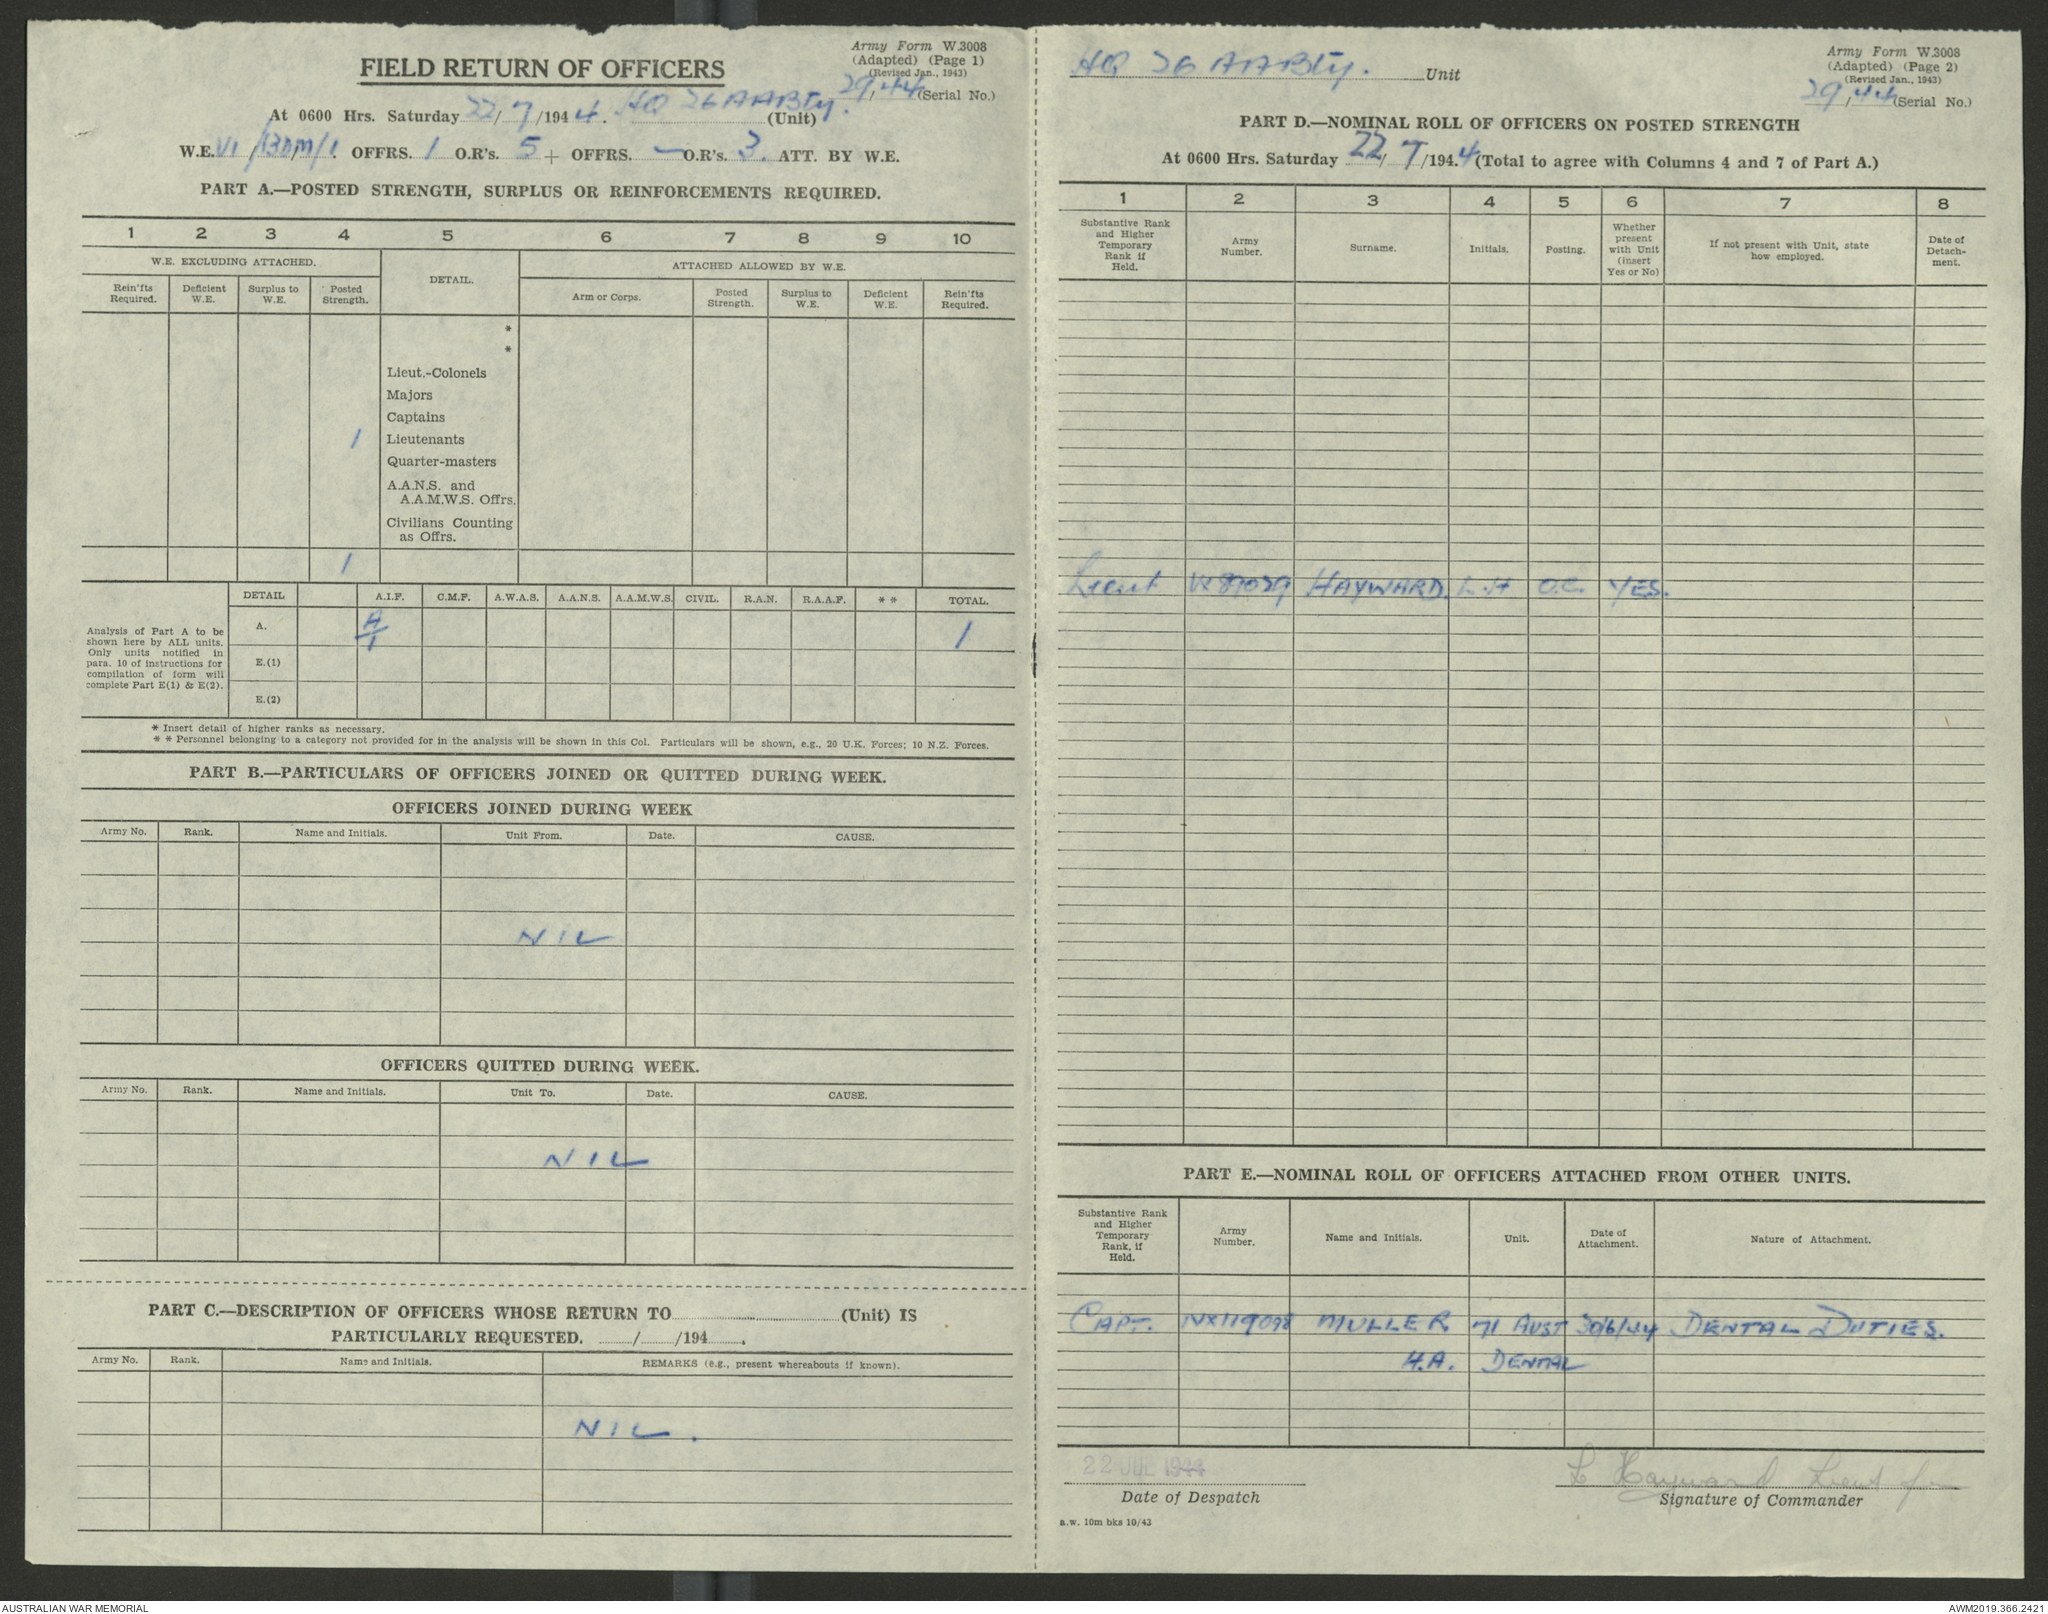 Army Form W.3008
(Adapted) (Page 1)
(Revised Jan., 1943)
FIELD RETURN OF OFFICERS
29/44 (Serial No.)
At 0600 Hrs. Saturday 22/7/1944. HQ 26 AA Bty. (Unit)
W.E. VI/130M/1. OFFRS. 1 O.R's. 5 + OFFRS. — O.R's. 3. ATT. BY W.E.
PART A.—POSTED STRENGTH, SURPLUS OR REINFORCEMENTS REQUIRED.
1 2 3 4 5 6 7 8 9 10
W.E. EXCLUDING ATTACHED. DETAIL. ATTACHED ALLOWED BY W.E.
Rein'fts Required. Deficient W.E. Surplus to W.E. Posted Strength. Arm or Corps. Posted Strength. Surplus to W.E. Deficient W.E. Rein'fts Required.
*
*
Lieut.-Colonels
Majors
Captains
1 Lieutenants
Quarter-masters
A.A.N.S. and
A.A.M.W.S. Offrs.
Civilians Counting
as Offrs.
1
DETAIL A.I.F. C.M.F. A.W.A.S. A.A.N.S. A.A.M.W.S. CIVIL. R.A.N. R.A.A.F. * * TOTAL.
Analysis of Part A to be
shown here by ALL units.
Only units notified in
para. 10 of instructions for
compilation of form will
complete Part E(1) & E(2).
A. A/1 1
E.(1)
E.(2)
* Insert detail of higher ranks as necessary.
* * Personnel belonging to a category not provided for in the analysis will be shown in this Col. Particulars will be shown, e.g., 20 U.K. Forces; 10 N.Z. Forces.
PART B.—PARTICULARS OF OFFICERS JOINED OR QUITTED DURING WEEK.
OFFICERS JOINED DURING WEEK
Army No. Rank. Name and Initials. Unit From. Date. CAUSE.
NIL
OFFICERS QUITTED DURING WEEK.
Army No. Rank. Name and Initials. Unit To. Date. CAUSE.
NIL
PART C.—DESCRIPTION OF OFFICERS WHOSE RETURN TO (Unit) IS
PARTICULARLY REQUESTED. / /194 .
Army No. Rank. Name and Initials. REMARKS (e.g., present whereabouts if known).
NIL.
HQ 26 AA Bty. Unit
Army Form W.3008
(Adapted) (Page 2)
(Revised Jan., 1943)
29/44 (Serial No.)
PART D.—NOMINAL ROLL OF OFFICERS ON POSTED STRENGTH
At 0600 Hrs. Saturday 22/7/1944 (Total to agree with Columns 4 and 7 of Part A.)
1 2 3 4 5 6 7 8
Substantive Rank and Higher Temporary Rank if Held. Army Number. Surname. Initials. Posting. Whether present with Unit (insert Yes or No) If not present with Unit, state how employed. Date of Detach-ment.
Lieut HAYWARD. L.H O.C. YES.
PART E.—NOMINAL ROLL OF OFFICERS ATTACHED FROM OTHER UNITS.
Substantive Rank and Higher Temporary Rank, if Held. Army Number. Name and Initials. Unit. Date of Attachment. Nature of Attachment.
CAPT. NX119098 MULLER 71 AUST 30/6/44 DENTAL DUTIES.
H.A. DENTAL
22 JUL 1944
L Hayward Lieut
Date of Despatch
Signature of Commander
a.w. 10m bks 10/43
AUSTRALIAN WAR MEMORIAL
AWM2019.366.2421